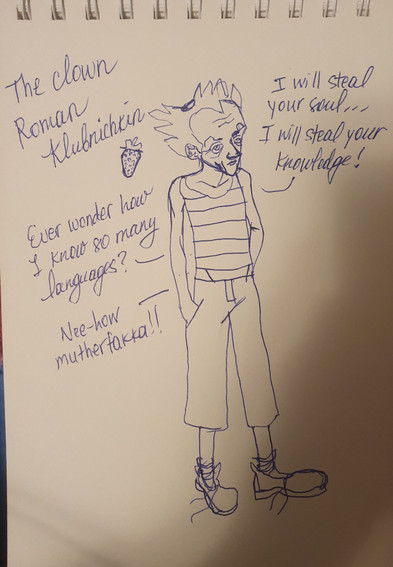 The clown
Roman
Klubnichkin
I will steal
your soul...
I will steal your
knowledge!
Ever wonder how
I know so many
languages?
Nee-how
mutherfakka!!